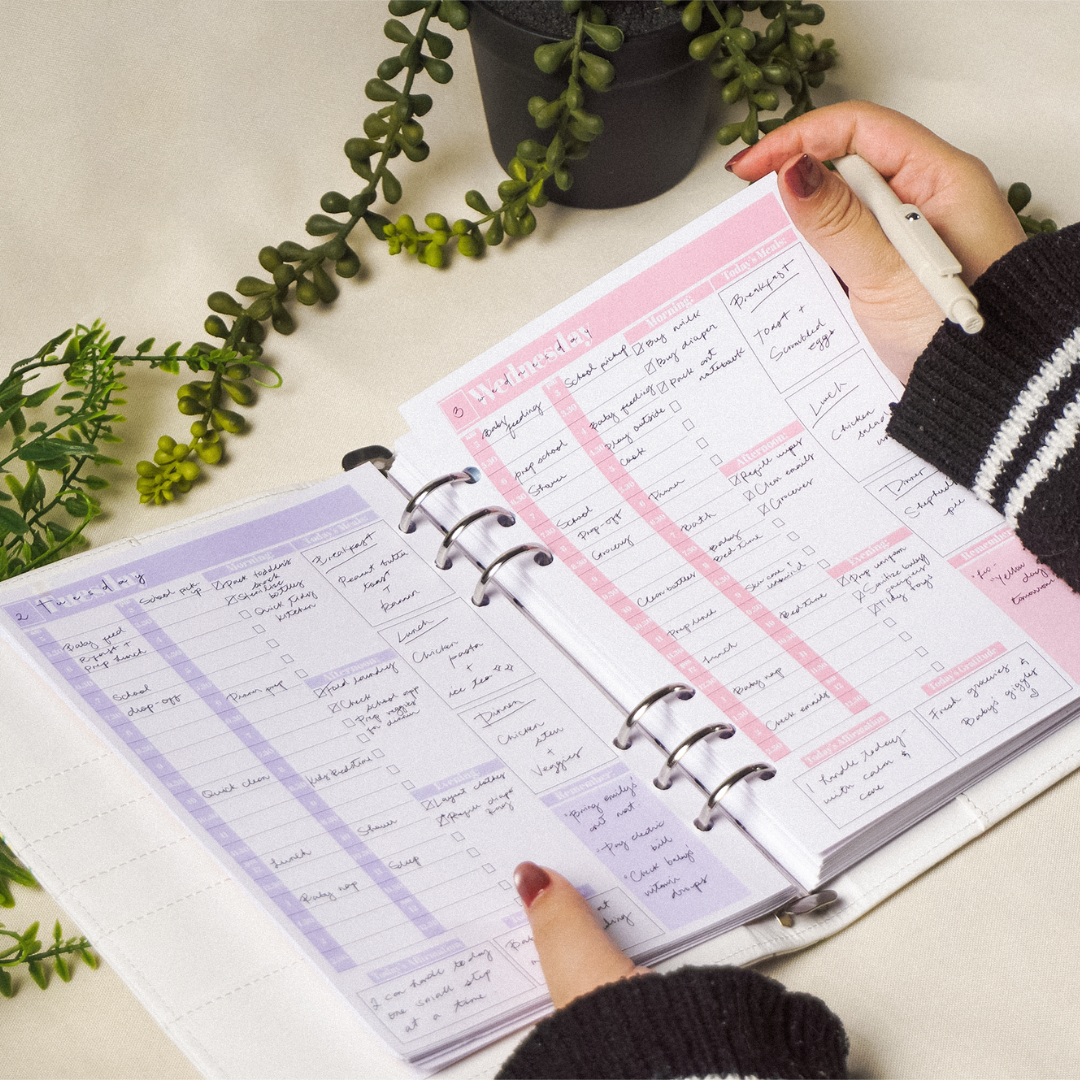 2 Tuesday
Baby feed
Prep lunch
School
drop-off
Quick clean
Lunch
Baby nap
School pick
up
Dinner prep
Kids Bedtime
Shower
Sleep
Morning:
Pack toddlers'
Sterilize
bottles
Quick tidy
kitchen
Afternoon:
Fold laundry
Check
school app
Prep veggies
for dinner
Evening:
Layout clothes
Today's Meals:
Breakfast
Peanut butter
toast
+
Banana
Lunch
Chicken
pasta
+
ice tea
Dinner
Chicken
stew
+
Veggies
Remember:
"Bring emily's
"Pay electric
bill
"Check baby's
vitamin
drops
Today's Affirmation
I can handle today
one small step
at a time
3 Wednesday
Baby
feeding
Prep school
Shower
School
Drop-off
Grocery
Clean bottles
Prep lunch
Lunch
Baby nap
Check emails
School pickup
Baby feeding
Play outside
Cook
Dinner
Bath
Baby
Bed time
Skin care &
Bedtime
Morning:
Buy milk
Buy diaper
Pack art
notebook
Afternoon:
Refill wipes
Clean emails
Groceries
Evening:
Prep uniform
Sanitize baby
Tidy toys
Today's Meals:
Breakfast
Toast +
Scrambled
egg
Lunch
Chicken
salad
Dinner
Shepherd's
pie
Remember
"Yellow
day"
tomorrow
Today's Gratitude
Fresh groceries
&
Baby's giggles
Today's Affirmation
I handle today
with calm &
care